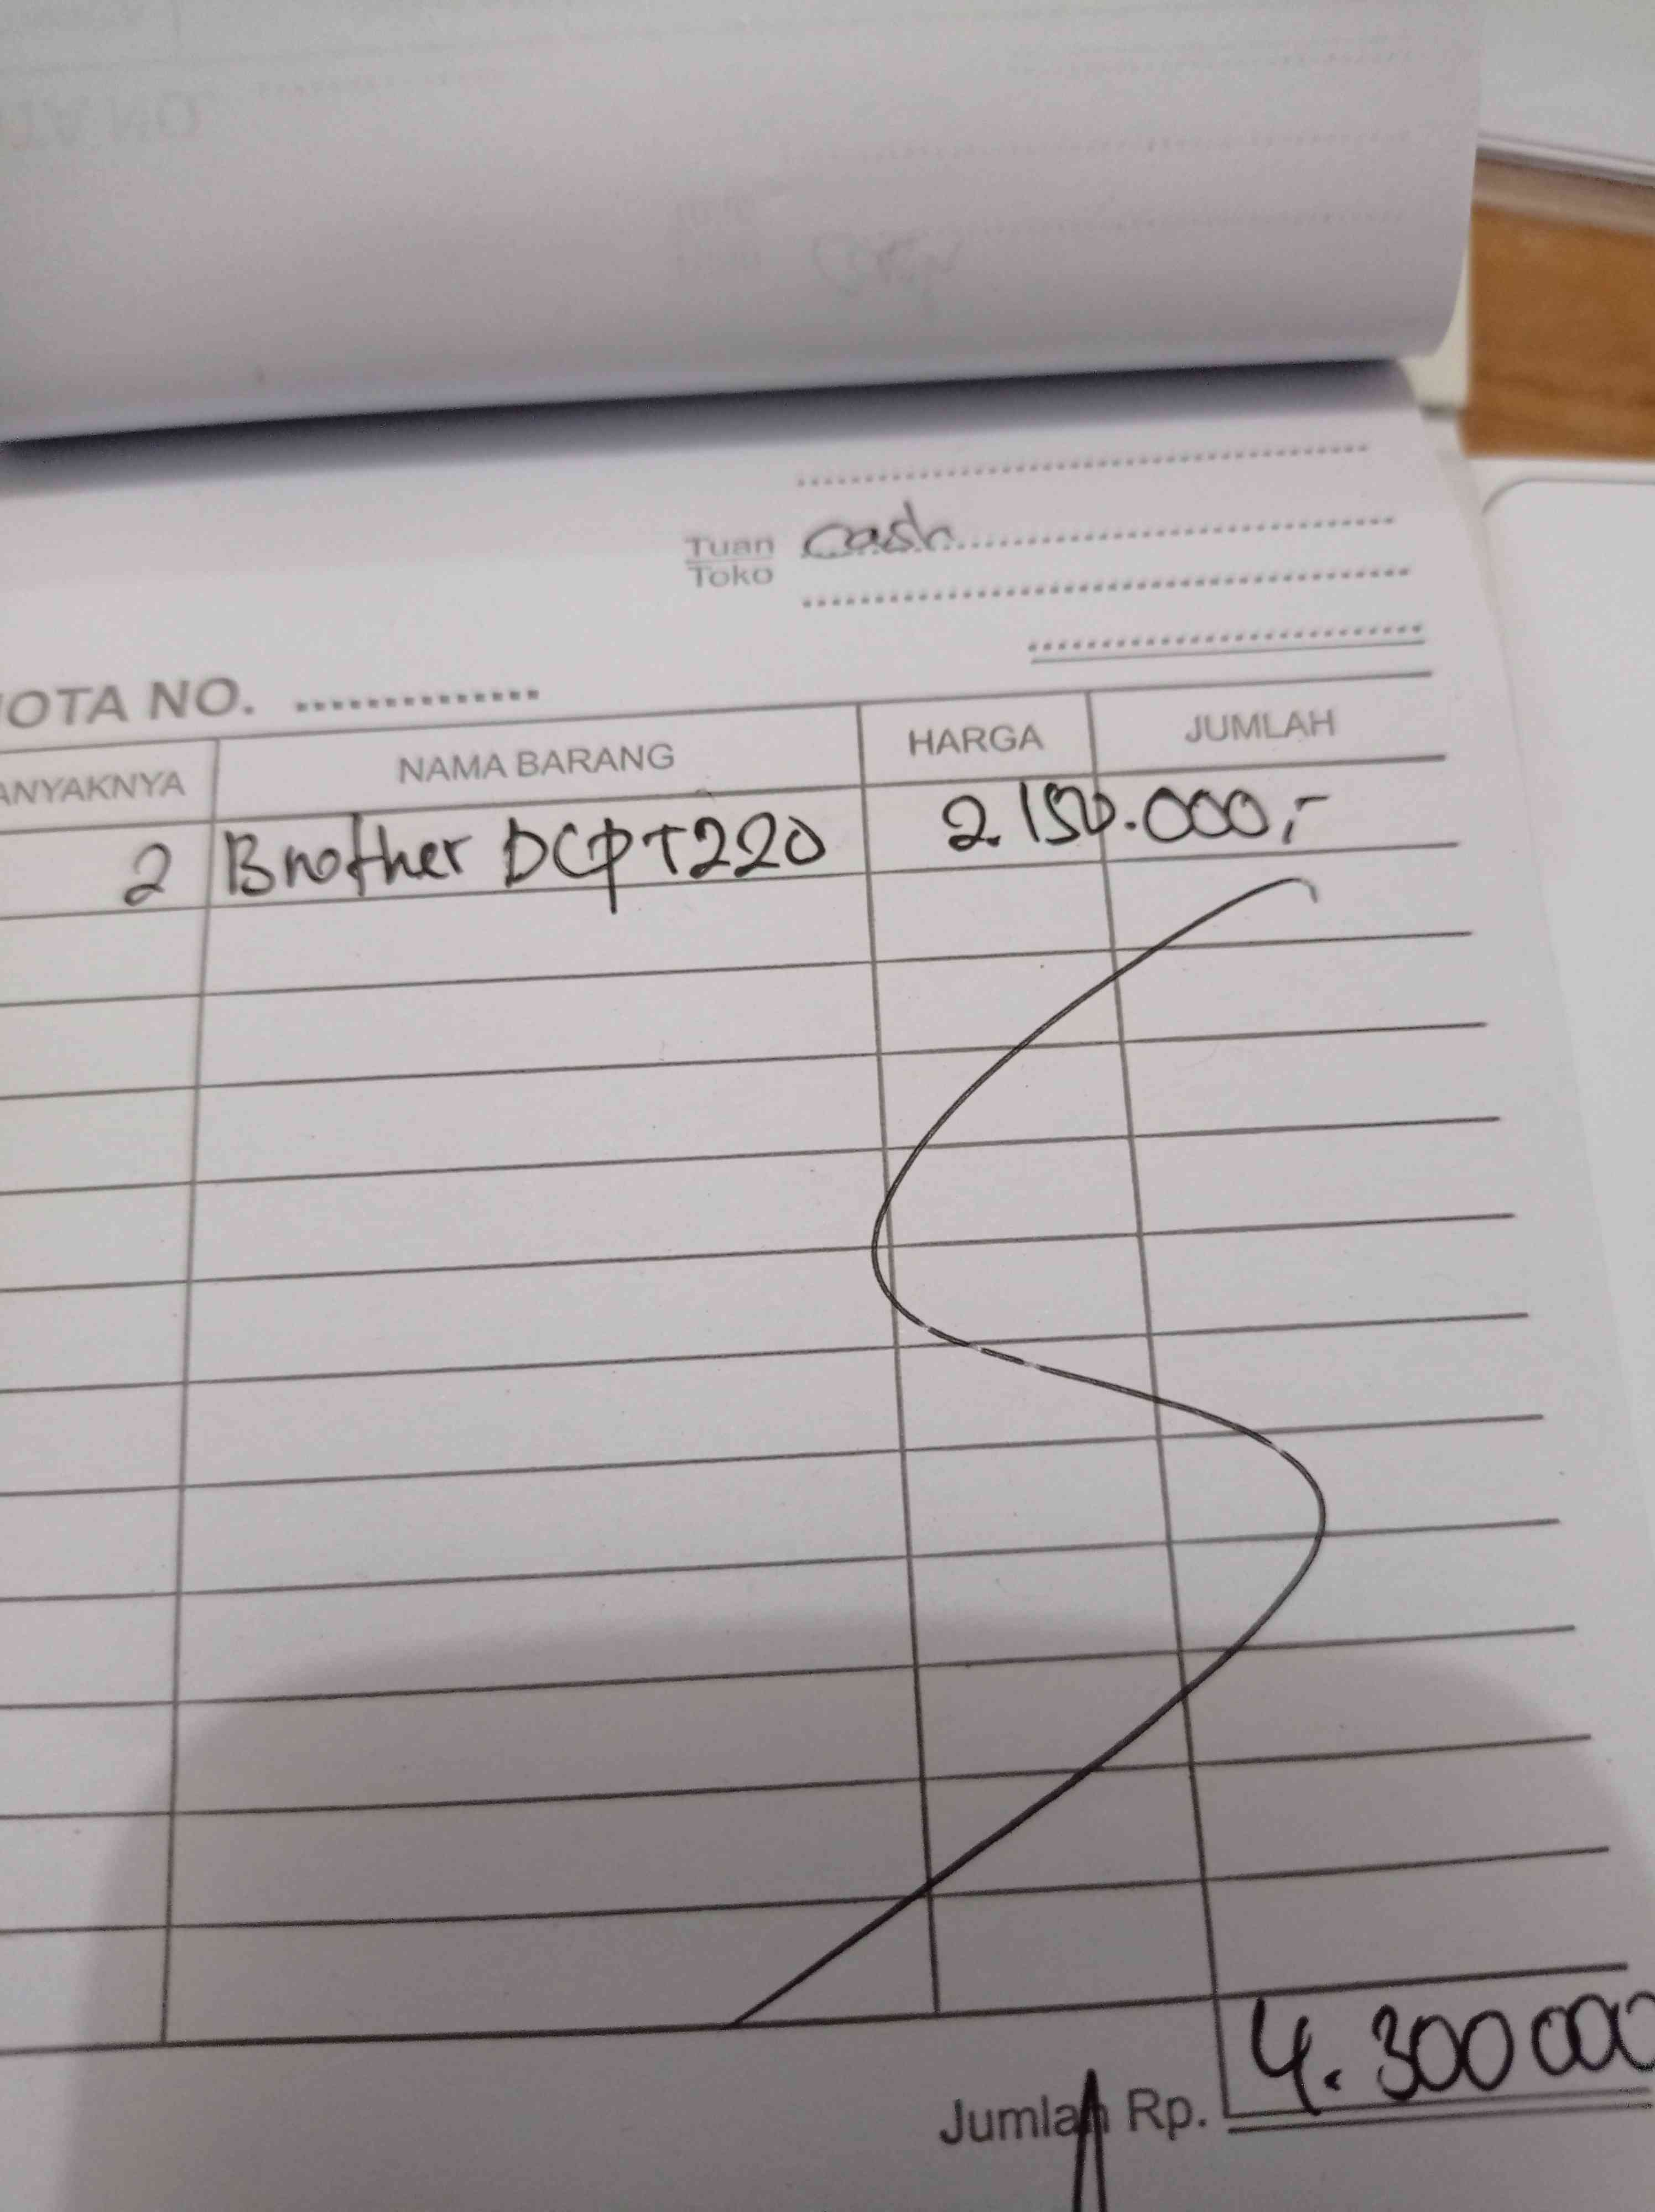 Tuan cash
Toko
OTA NO.
ANYAKNYA NAMA BARANG HARGA JUMLAH
2 Brother DCP T220 2.150.000,-
Jumlah Rp. 4.300 000